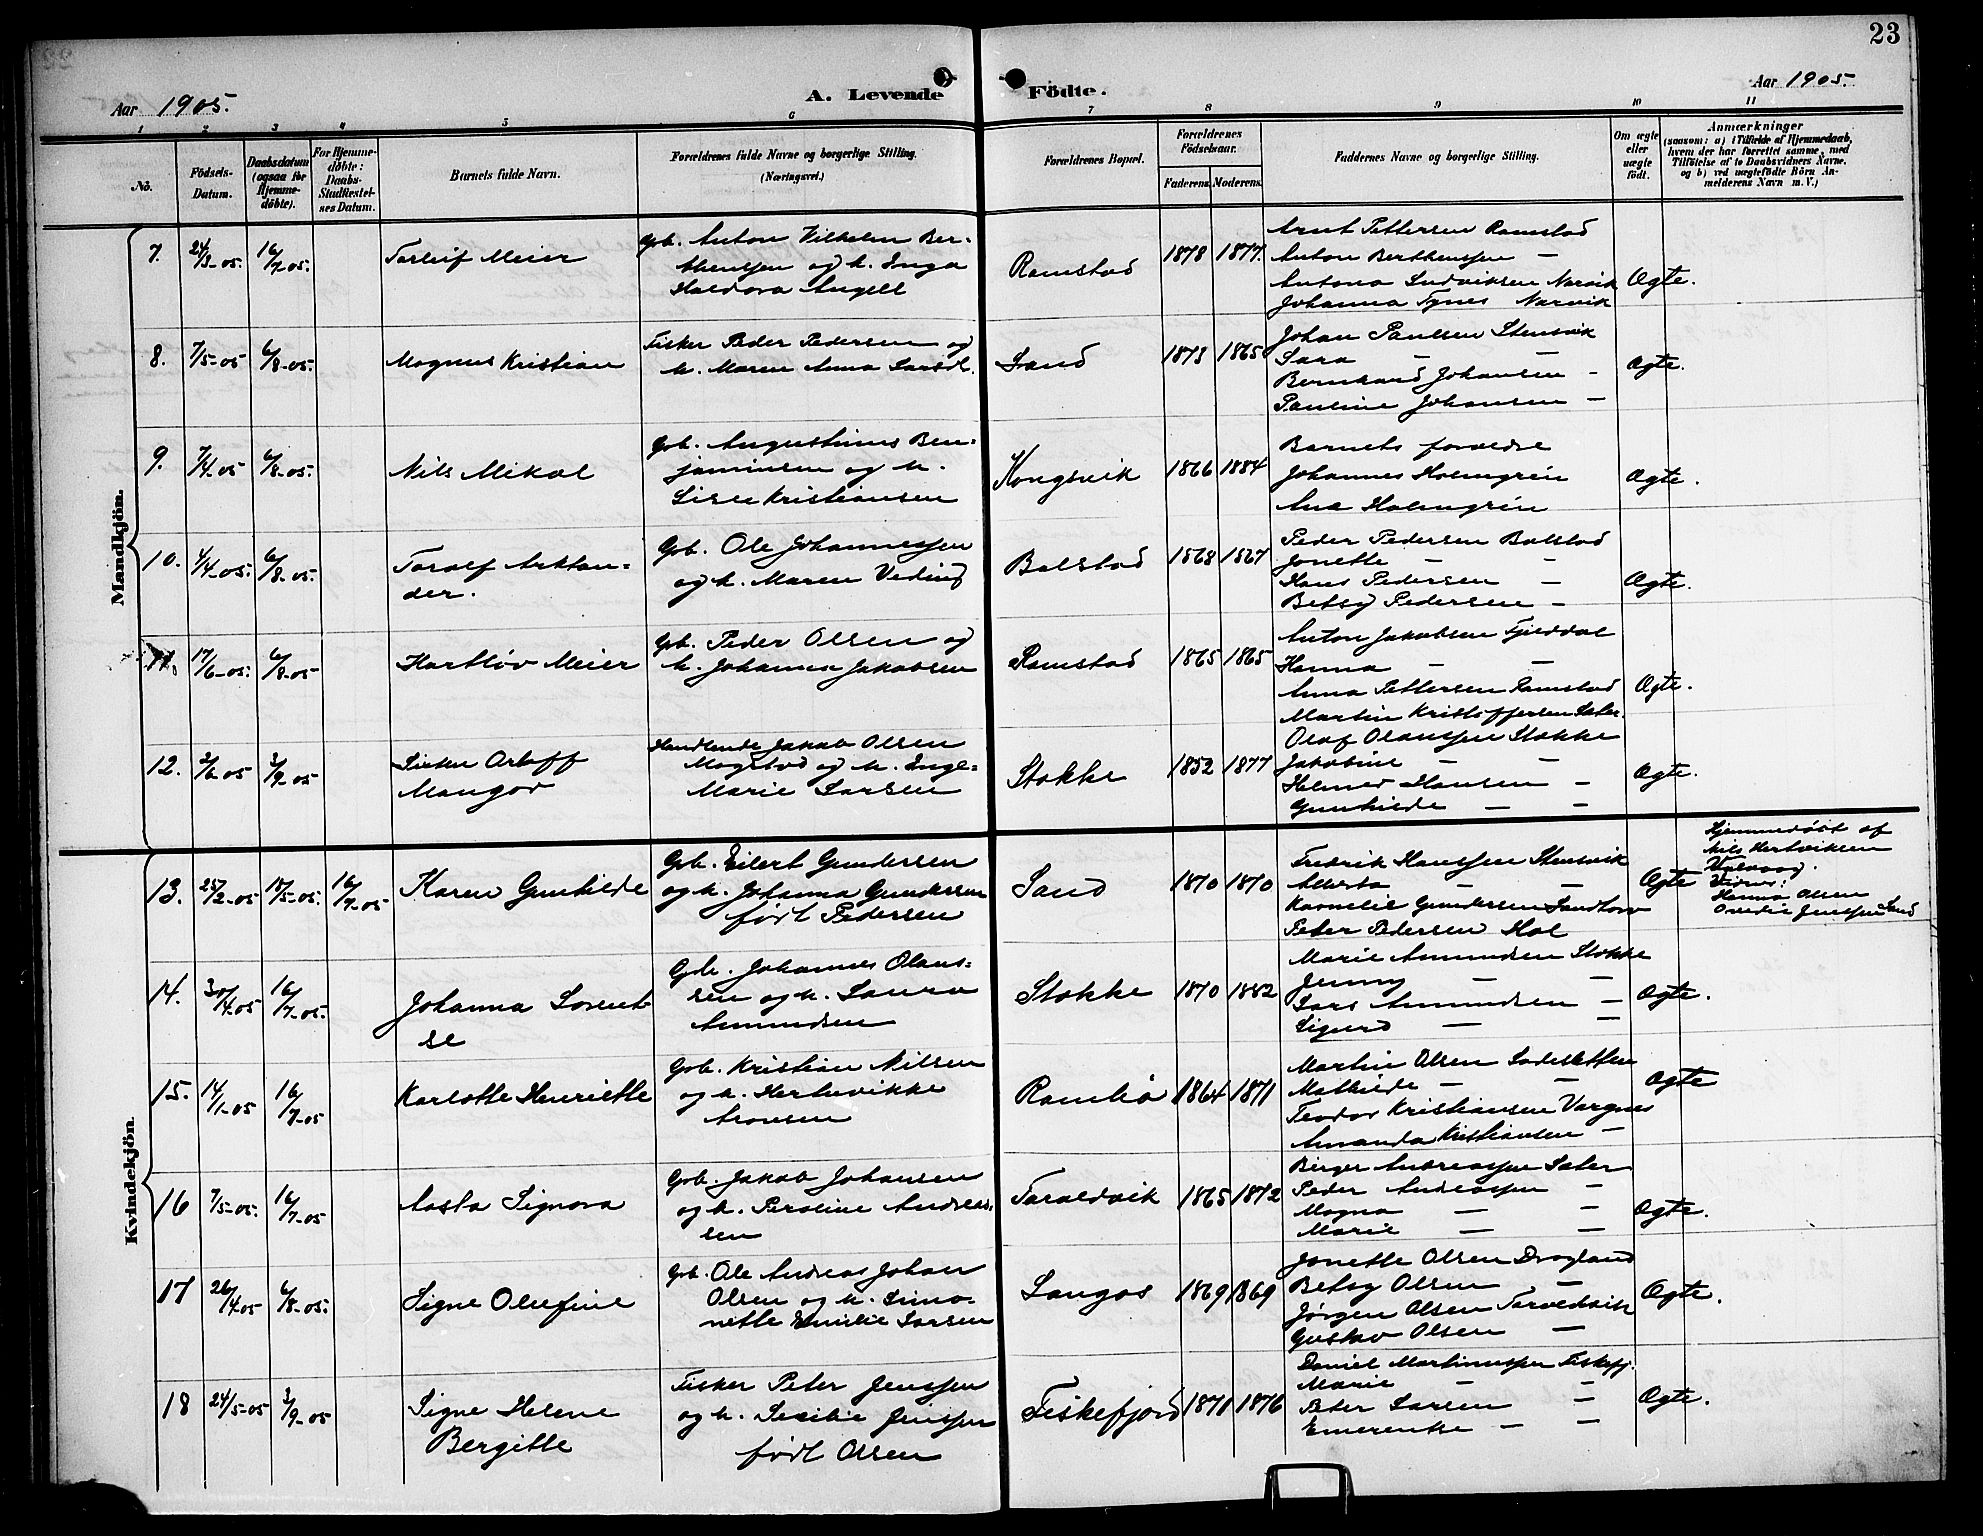 23
Aar 1905.
A. Levende
Födte.
Aar 1905.
1 2 3 4 5 6 7 8 9 10 11
No.
Födsels-
Datum.
Daabsdatum
(ogsaa for
Hjemme-
döbte).
For Hjemme-
döbte:
Daabs-
Stadfæstel-
ses Datum.
Barnets fulde Navn.
Forældrenes fulde Navne og borgerlige Stilling.
(Næringsvei.)
Forældrenes Bopæl.
Forældrenes
Födselsaar.
Faderens. Moderens.
Faddernes Navne og borgerlige Stilling.
Om ægte
eller
uægte
födt.
Anmærkninger
(saasom: a) i Tilfælde af Hjemmedaab,
hvem der har forrettet samme, med
Tilföielse af to Daabsvidners Navne,
og b) ved uægtefödte Börn An-
melderens Navn m. V.)
Mandkjön.
7.
24/3-05.
16/7-05.
Torleif Meier
Gb. Anton Vilhelm Ber-
thenssen og h. Inga
Haldora Angell
Ramstad
1878 1877
Arnt Pettersen Ramstad
Anton Berthenssen —
Antona Ludviksen Narvik
Johanna Tynes Narvik
Ægte.
8.
7/5-05
6/8-05.
Magnus Kristian
Fisker Peder Pedersen og
h. Maren Anna Larsdt.
Sand
1873 1865
Johan Paulsen Stensvik
Sara — —
Bernhard Johansen —
Pauline Johansen —
Ægte.
9.
7/4-05
6/8-05.
Nils Mikal
Gb. Augustinus Ben-
jaminsen og h.
Lise Kristiansen
Kongsvik
1866 1884
Barnets forældre
Johannes Holmgrén
Ana Holmgrén
Ægte.
10.
4/4-05.
6/8-05.
Toralf Arktan-
der.
Gb. Ole Johannessen
og h. Maren Veding
Balstad
1868 1867
Peder Pedersen Balstad
Jonette — —
Hans Pedersen —
Betsy Pedersen —
Ægte.
11.
17/6-05.
6/8-05
Hartløv Meier
Gb. Peder Olsen og
h. Johanna Jakobsen
Ramstad
1865 1865
Anton Jakobsen Fjelddal
Hanna — —
Anna Pettersen Ramstad
Martin Kristoffersen Sæter.
Ægte.
12.
2/6-05
3/9-05
Sirken Orloff
Mangor
Handlende Jakob Olsen
Magstad og h. Inge-
Marie Larsen
Stokke
1852 1877
Olaf Olaussen Stokke
Jakobine — —
Helmer Hansen —
Gunhilde — —
Ægte.
Kvindekjön.
13.
25/2-05
15/5-05.
16/7-05
Karen Gunhilde
Gb. Eilert Gundersen
og h. Johanna Gundersen
født Pedersen
Sand
1870 1870
Fredrik Hanssen Stensvik
Alberta — —
Kornelie Gundersen Sandtorv
Peter Pedersen Hol
Ægte
Hjemmedøbt af
Nils Hertviksen
Vidner:
Hanna Olsen
Ovedie Jenssen Sand
14.
30/4-05
16/7-05.
Johanna Lorent-
se
Gb. Johannes Olaus-
sen og h. Laura
Amundsen
Stokke
1870 1882
Marie Amundsen Stokke
Jenny — —
Lars Amundsen —
Sigurd — —
Ægte.
15.
14/1-05
16/7-05
Karlotte Henriette
Gb. Kristian Nilsen
og h. Hertnvikke
Aronsen
Rambø
1864 1871
Martin Olsen Ladesletten
Mathilde — —
Teodor Kristiansen Vargnes
Amanda Kristiansen —
Ægte
16
7/5-05.
16/7-05
Aasta Signora
Gb. Jakob Johansen
og h. Peroline Andreas-
sen
Taraldvik
1865 1872
Birger Andreassen Sæter
Peder Andreassen —
Magna — —
Marie — —
Ægte.
17
26/4-05
6/8-05.
Signe Oluffine
Gb. Ole Andreas Johan
Olsen og h. Simo-
nette Emilie Larsen
Sangos
1869 1869
Jonette Olsen Dragland
Betsy Olsen —
Jørgen Olsen Taraldvik
Gustav Olsen —
Ægte.
18
24/5-05
3/9-05
Signe Helene
Bergitte
Fisker Peter Jenssen
og h. Secilie Jenssen
født Olsen
Fiskefjord
1871 1876
Daniel Martinussen Fiskefj.
Marie — —
Peter Larsen —
Emerentse — —
Ægte.